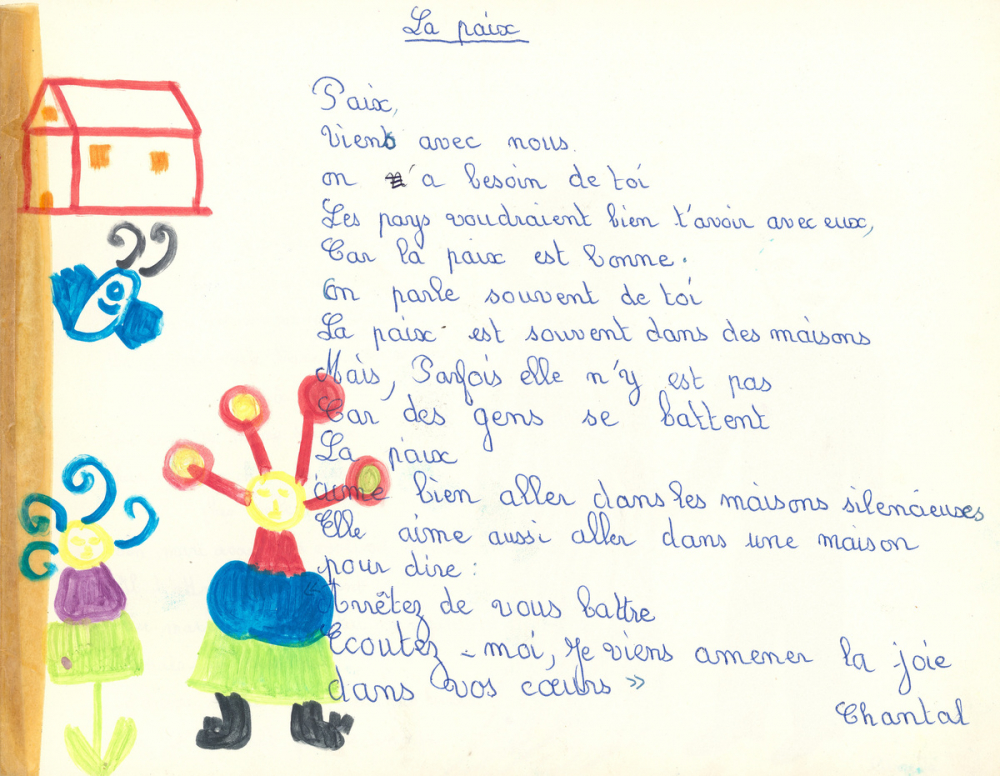 La paix
Paix,
viens avec nous.
on a besoin de toi
Les pays voudraient bien t'avoir avec eux,
Car la paix est bonne.
On parle souvent de toi
La paix est souvent dans des maisons
Mais, Parfois elle n'y est pas
Car des gens se battent
La paix
aime bien aller dans les maisons silencieuses
Elle aime aussi aller dans une maison
pour dire :
Arrêtez de vous battre
Ecoutez-moi, Je viens amener la joie
dans vos cœurs »
Chantal